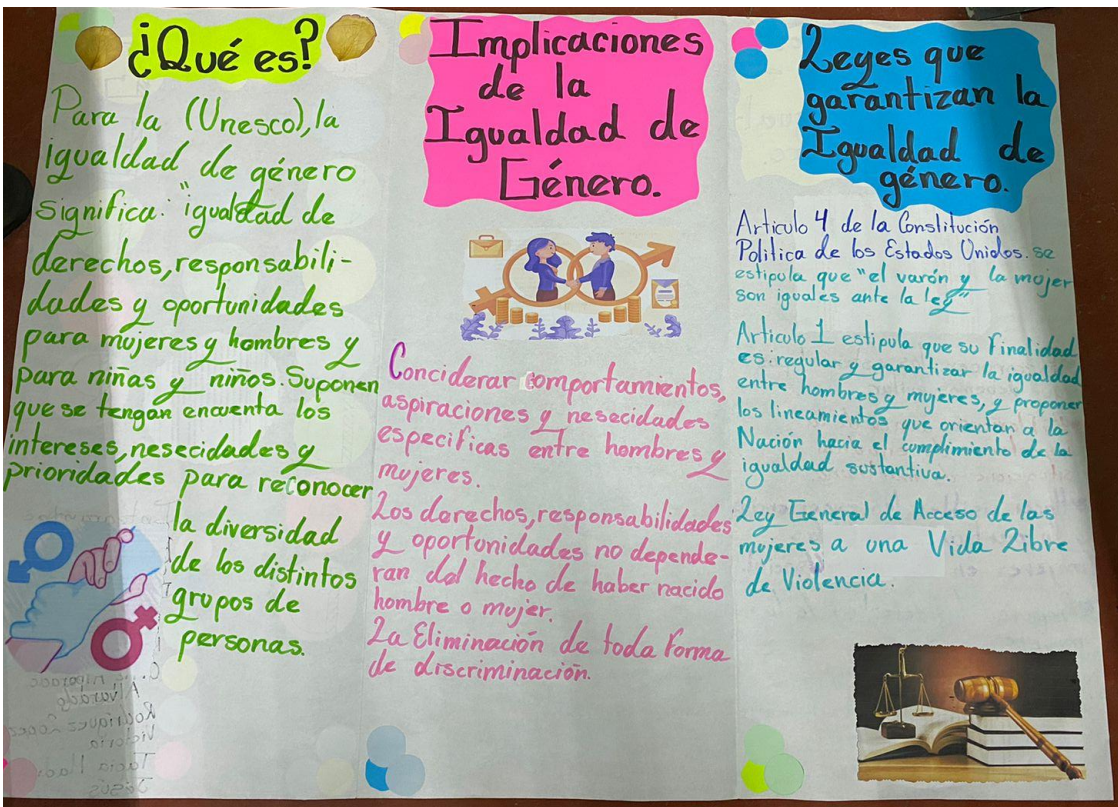 ¿Qué es?
Para la (Unesco), la
igualdad de género
significa: "igualdad de
derechos, responsabili-
dades y oportunidades
para mujeres y hombres y
para niñas y niños. Suponen
que se tengan encuenta los
intereses, nesecidades y
prioridades para reconocer
la diversidad
de los distintos
grupos de
personas.
Implicaciones
de la
Igualdad de
Género.
Conciderar comportamientos,
aspiraciones y nesecidades
especificas entre hombres y
mujeres.
Los derechos, responsabilidades
y oportunidades no depende-
ran del hecho de haber nacido
hombre o mujer.
La Eliminación de toda forma
de discriminación.
Leyes que
garantizan la
Igualdad de
género.
Articulo 4 de la Constitución
Politica de los Estados Unidos. se
estipula que "el varón y la mujer
son iguales ante la ley"
Articulo 1 estipula que su finalidad
es: regular y garantizar la igualdad
entre hombres y mujeres, y proponer
los lineamientos que orientan a la
Nación hacia el cumplimiento de la
igualdad sustantiva.
Ley General de Acceso de las
mujeres a una Vida Libre
de Violencia.
Alvarado
Rodriguez Lopez
Victoria